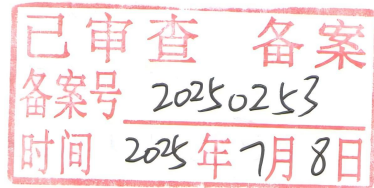 已审查 备案
备案号 20250253
时间 2025年7月8日